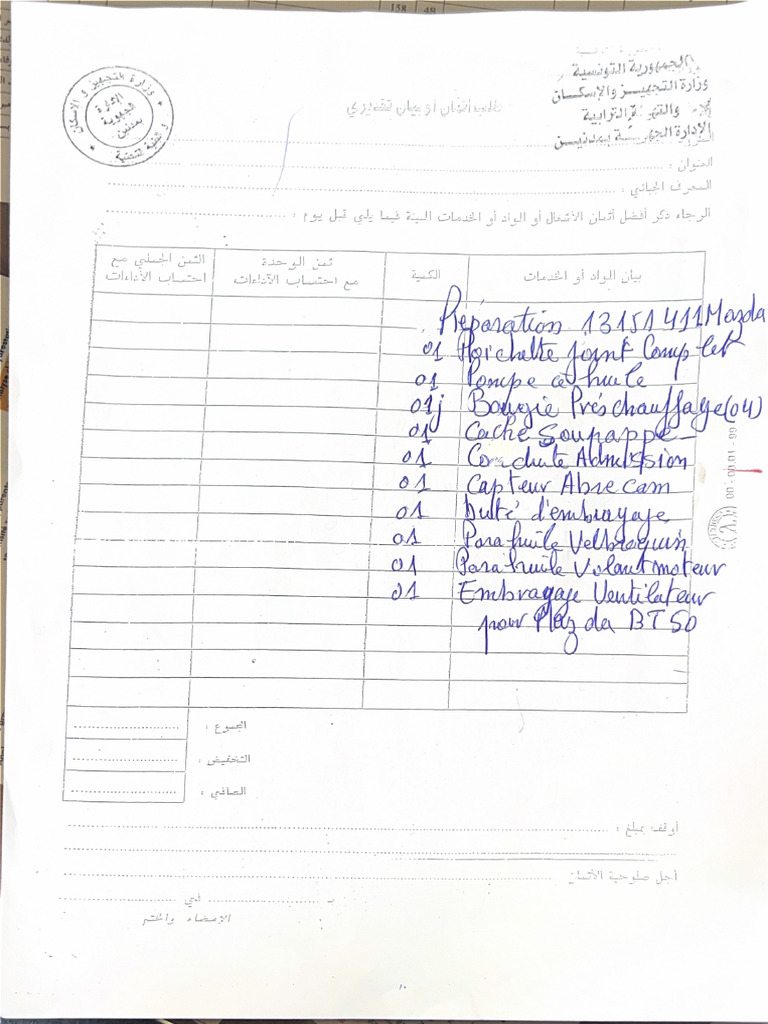 158 49
الجمهورية التونسية
وزارة التجهيز والإسكان
والتهيئة الترابية
الإدارة الجهوية بمدنين
وزارة التجهيز و الإسكان
الإدارة
الجهوية
بمدنين
طلب أثمان أو بيان تقديري
العنوان :
المعرف الجبائي :
الرجاء ذكر أفضل أثمان الأشغال أو المواد أو الخدمات المبينة فيما يلي قبل يوم :
بيان المواد أو الخدمات الكمية ثمن الوحدة مع احتساب الأداءات الثمن الجملي مع احتساب الأداءات
Préparation 13151411 Mazda
01 Poichette joint Complet
01 Pompe a huile
01j Bougie Préschauffage (04)
01 Cache Soupappe
01 Conduite Admission
01 Capteur Abrecam
01 Buté d'embrayage
01 Para huile Velbrequin
01 Para huile Volant moteur
01 Embrayage Ventilateur
pour Mazda BT50
المجموع :
التخفيض :
الصافي :
أوقف بمبلغ :
أجل صلوحية الأثمان
بـ في
الإمضاء والختم